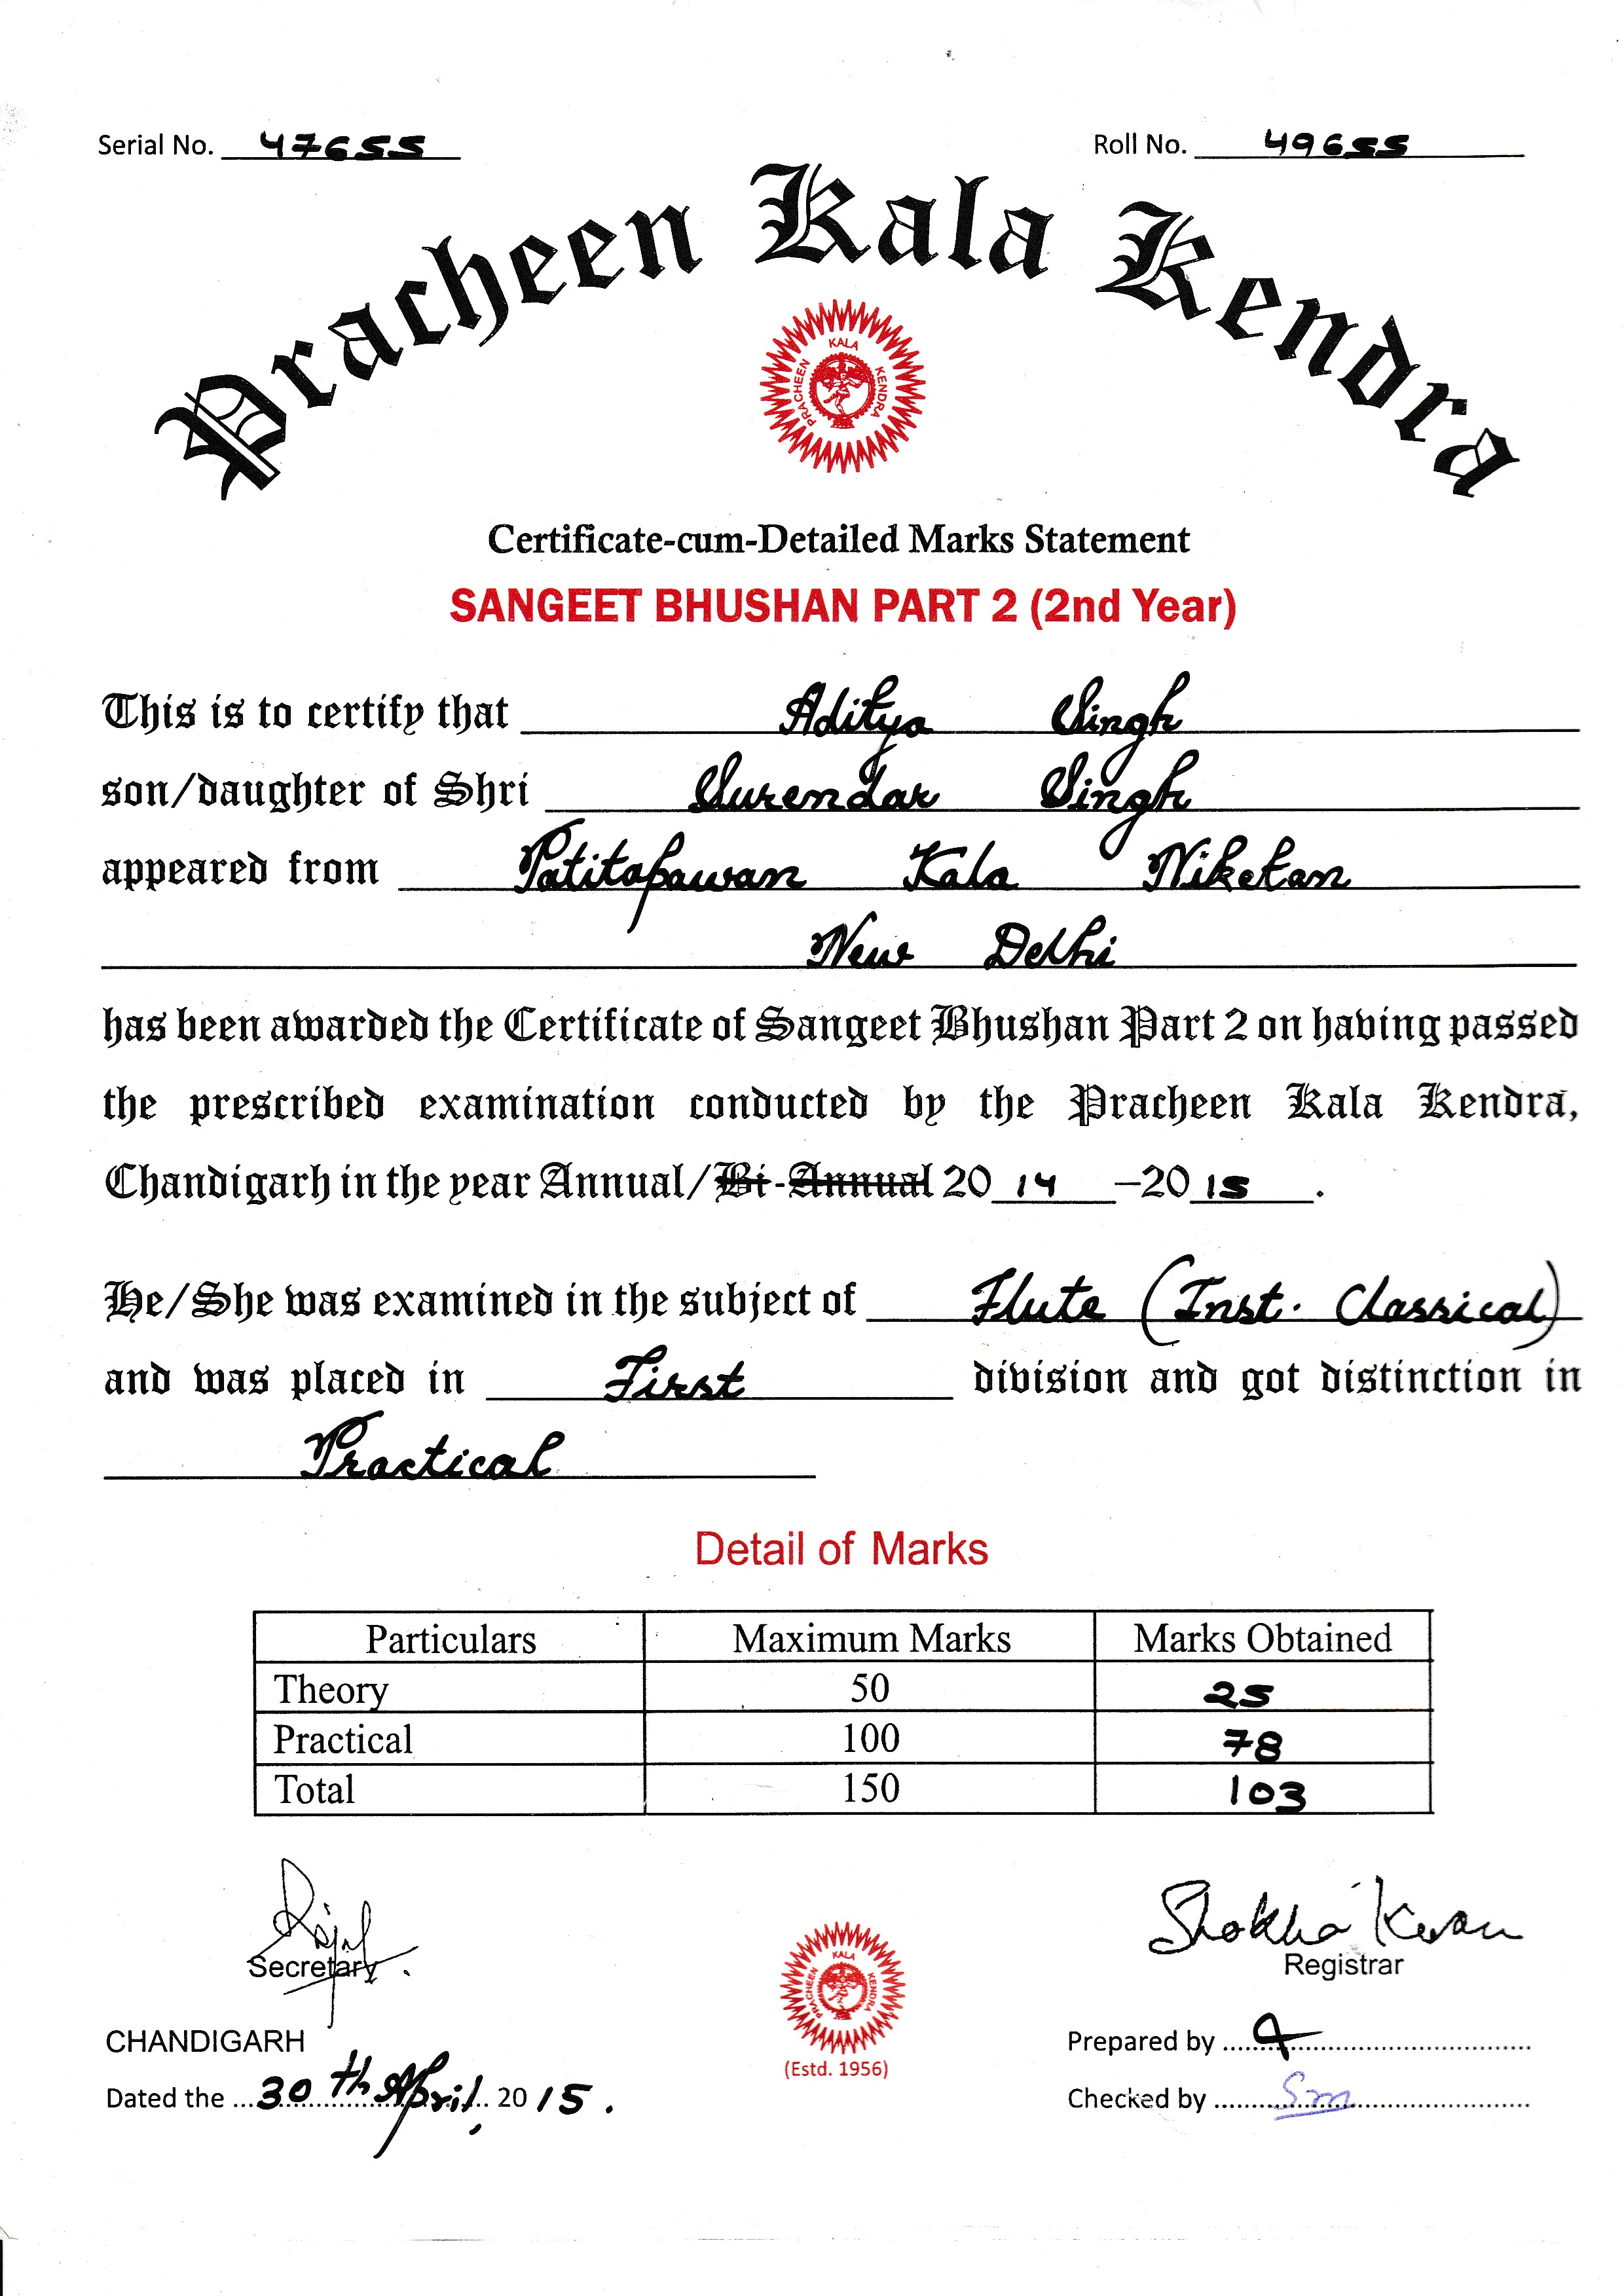 Serial No. 47655
Roll No. 49655
Pracheen Kala Kendra
PRACHEEN KALA KENDRA
Certificate-cum-Detailed Marks Statement
SANGEET BHUSHAN PART 2 (2nd Year)
This is to certify that Aditya Singh
son/daughter of Shri Surendar Singh
appeared from Patitapawan Kala Niketan
New Delhi
has been awarded the Certificate of Sangeet Bhushan Part 2 on having passed
the prescribed examination conducted by the Pracheen Kala Kendra,
Chandigarh in the year Annual/Bi-Annual 2014 –2015.
He/She was examined in the subject of Flute (Inst. Classical)
and was placed in First division and got distinction in
Practical
Detail of Marks
Particulars Maximum Marks Marks Obtained
Theory 50 25
Practical 100 78
Total 150 103
Secretary
Registrar
PRACHEEN KALA KENDRA
(Estd. 1956)
CHANDIGARH
Dated the 30th April, 2015.
Prepared by
Checked by Sm